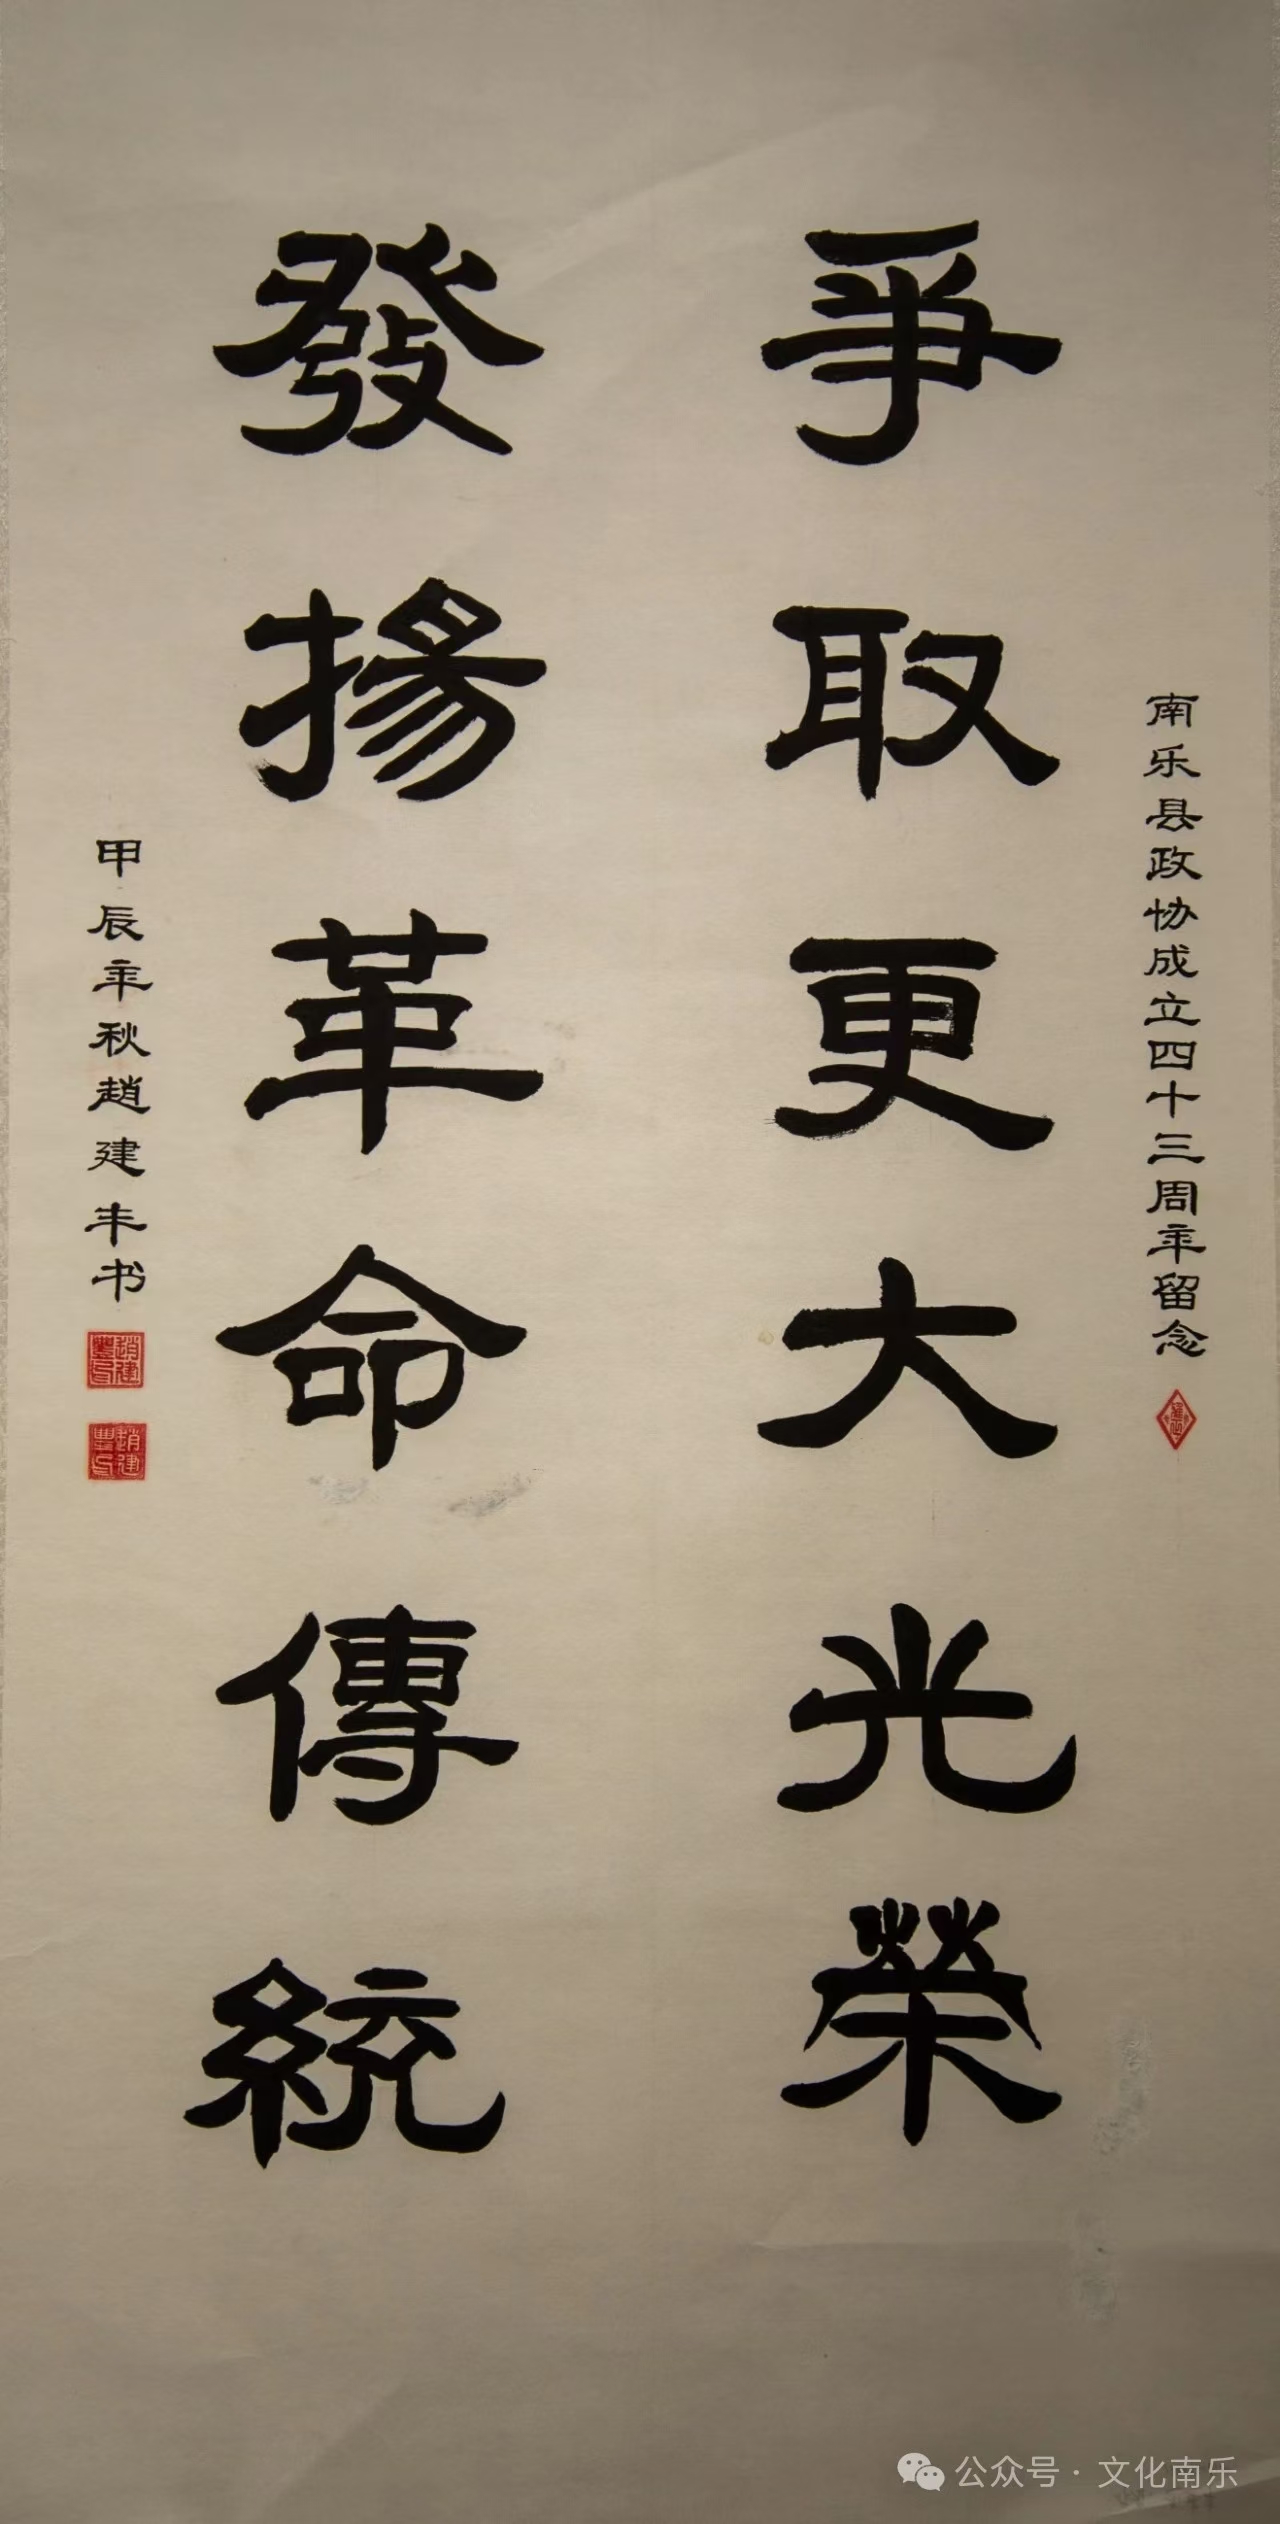 南乐县政协成立四十三周年留念
争取更大光荣
發揚革命傳統
甲辰年秋趙建丰书
趙建豐印
趙建豐印
公众号 · 文化南乐